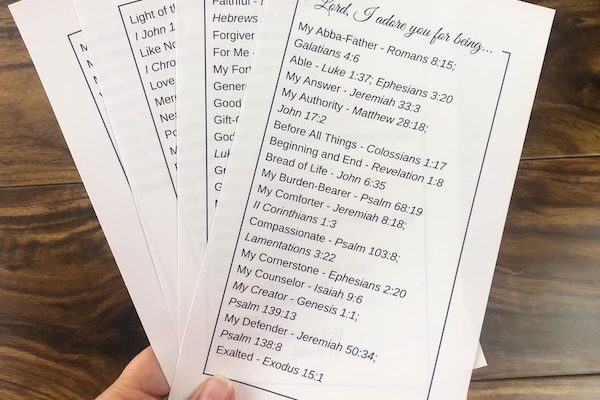 M
M
M
M
Light of th
I John 1
Like No
I Chro
Love
Merc
Nea
Po
Faithful -
Hebrews
Forgiver
For Me -
My Fort
Genero
Good
Gift-G
God
Luk
Gr
Gr
M
Lord, I adore you for being...
My Abba-Father - Romans 8:15;
Galatians 4:6
Able - Luke 1:37; Ephesians 3:20
My Answer - Jeremiah 33:3
My Authority - Matthew 28:18;
John 17:2
Before All Things - Colossians 1:17
Beginning and End - Revelation 1:8
Bread of Life - John 6:35
My Burden-Bearer - Psalm 68:19
My Comforter - Jeremiah 8:18;
II Corinthians 1:3
Compassionate - Psalm 103:8;
Lamentations 3:22
My Cornerstone - Ephesians 2:20
My Counselor - Isaiah 9:6
My Creator - Genesis 1:1;
Psalm 139:13
My Defender - Jeremiah 50:34;
Psalm 138:8
Exalted - Exodus 15:1